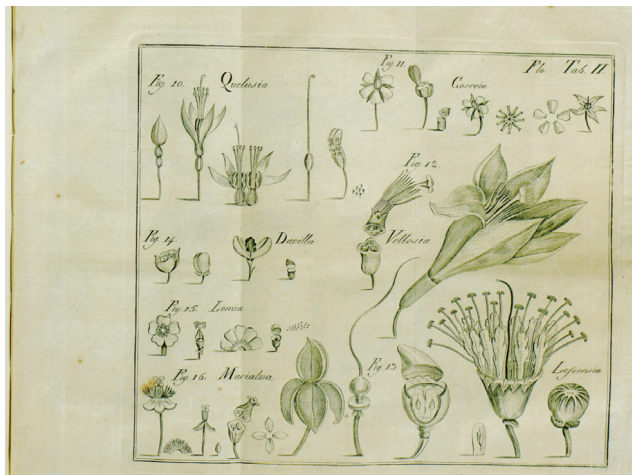 Fig. 10. Quelusia
Fig. 11. Correia
Flo. Tab. II.
Fig. 12.
Vellosia
Fig. 14. Davilla
Fig. 15. Lemia
Fig. 16. Marialva
Fig. 13
Lafoensia